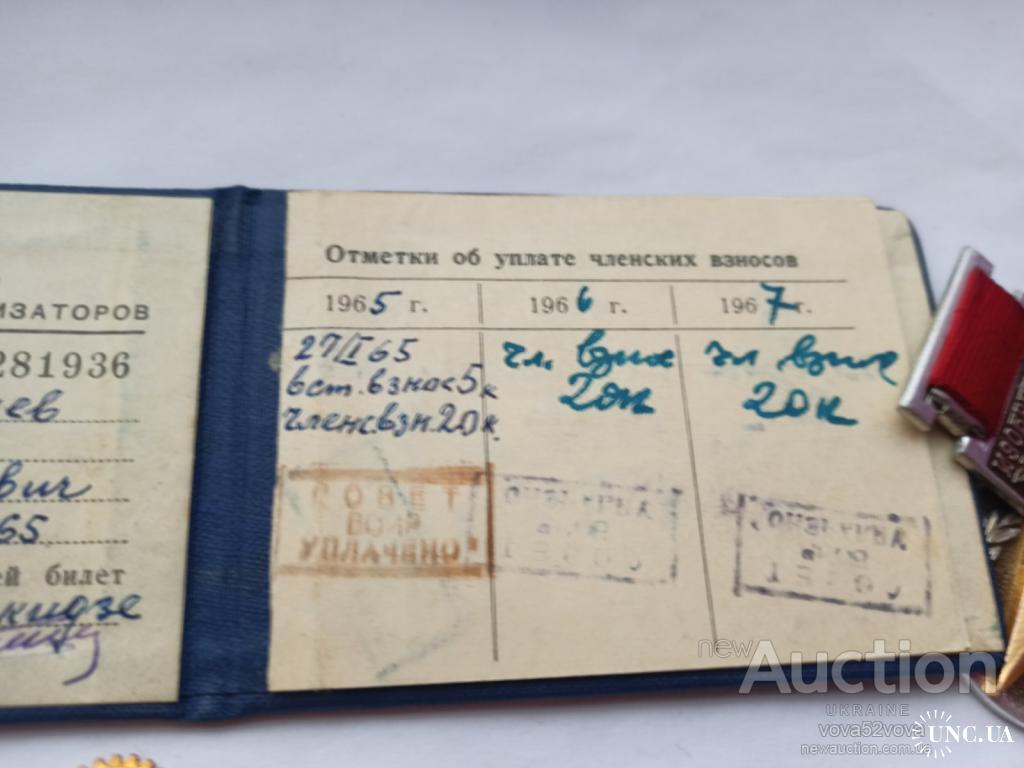 ИЗАТОРОВ
281936
ев
вич
65
ей билет
кидзе
Отметки об уплате членских взносов
1965 г.
1966 г.
1967 г.
27/I 65
вст. взнос 5 к
членс. взн. 20 к.
чл. взнос
20 к
чл взнос
20 к
СОВЕТ
ВОИР
УПЛАЧЕНО
newAuction
UKRAINE
vova52vova
newauction.com.ua
UNC.UA